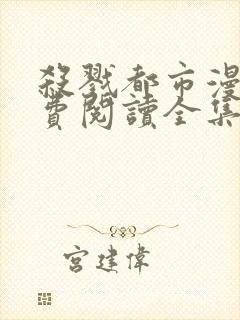 殺戮都市漫
費閱讀全集
宮建偉